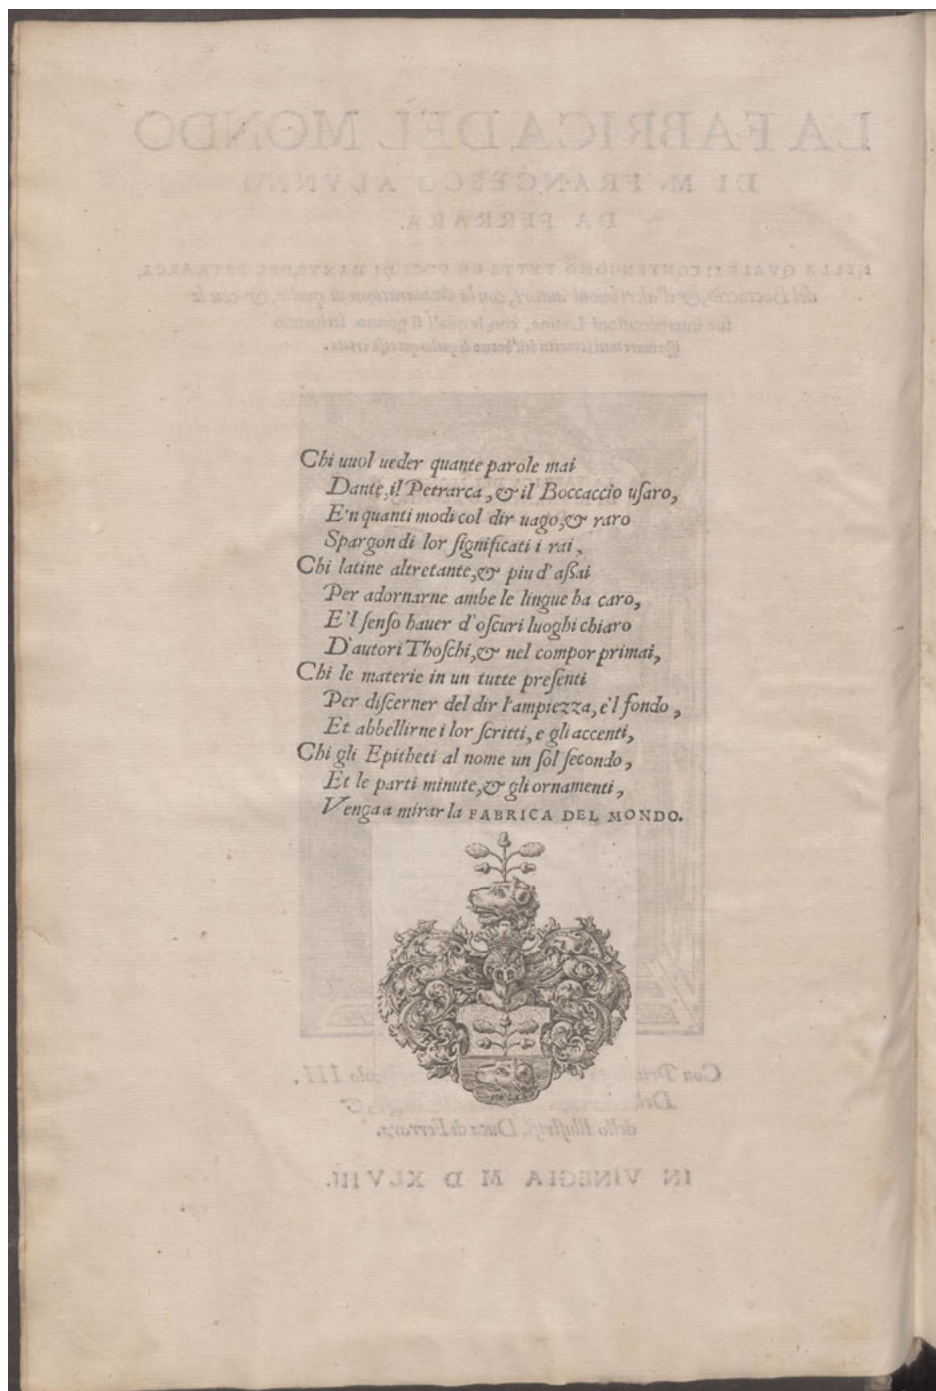 Chi uuol ueder quante parole mai
Dante, il Petrarca, & il Boccaccio uſaro,
E'n quanti modi col dir uago, & raro
Spargon di lor ſignificati i rai,
Chi latine altretante, & piu d'aßai
Per adornarne ambe le lingue ha caro,
E'l ſenſo hauer d'oſcuri luoghi chiaro
D'autori Thoſchi, & nel compor primai,
Chi le materie in un tutte preſenti
Per diſcerner del dir l'ampiezza, e'l fondo,
Et abbellirne i lor ſcritti, e gli accenti,
Chi gli Epitheti al nome un ſol ſecondo,
Et le parti minute, & gli ornamenti,
Venga a mirar la FABRICA DEL MONDO.